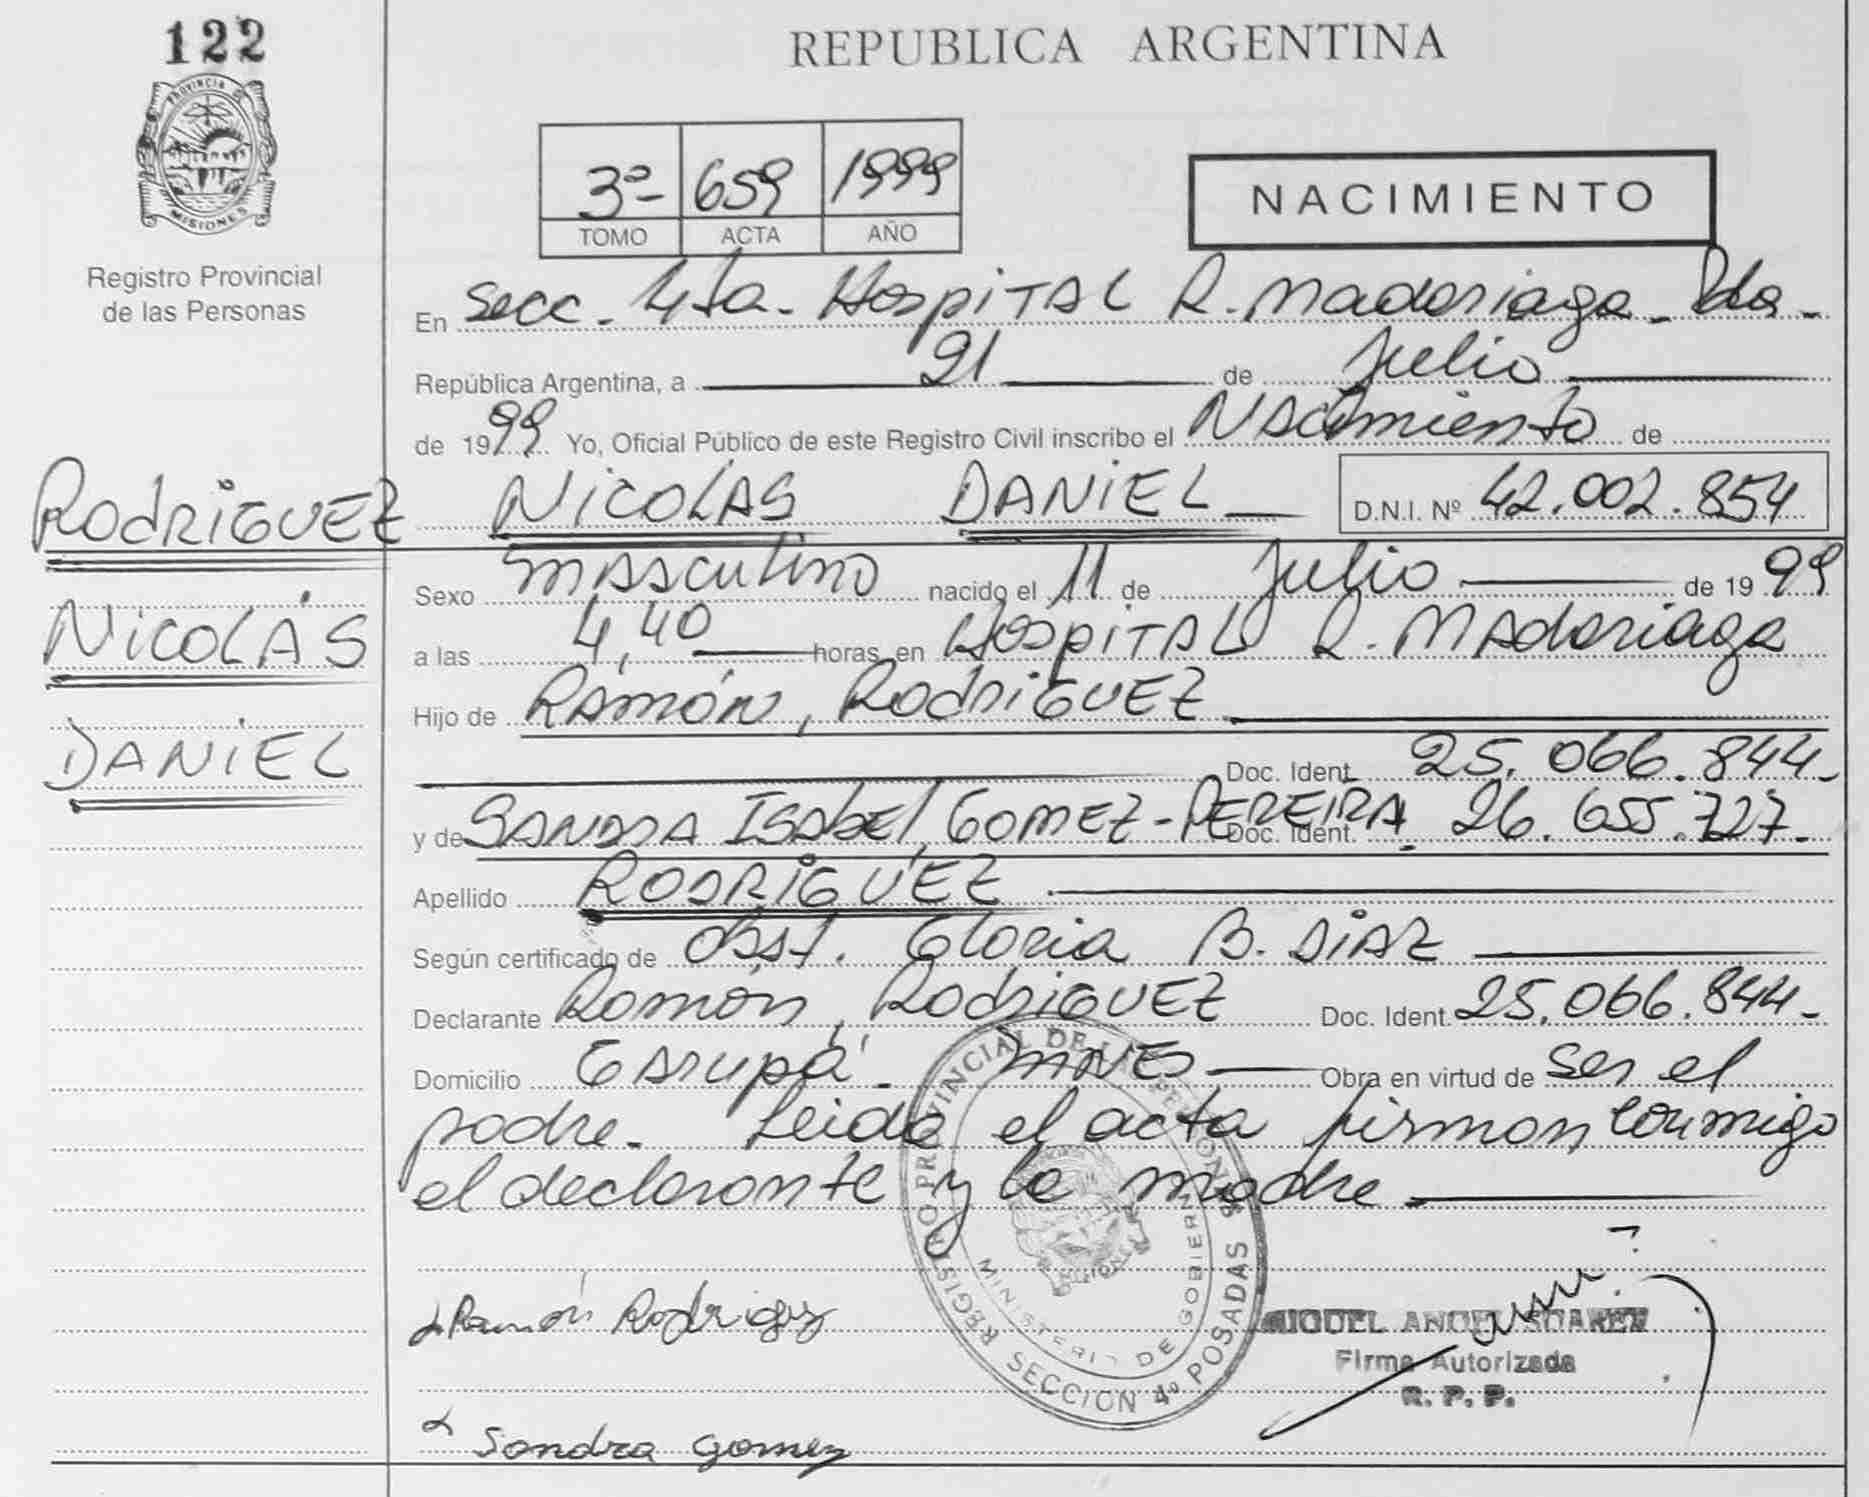 122
REPUBLICA ARGENTINA
PROVINCIA DE
MISIONES
Registro Provincial
de las Personas
3º- 659 1999
TOMO ACTA AÑO
NACIMIENTO
En Secc. 4ta. Hospital R. Madariaga. Pdas.
República Argentina, a 21 de Julio
de 1999 Yo, Oficial Público de este Registro Civil inscribo el Nacimiento de
RodRiGUEZ NiCOLAS DANiEL D.N.I. Nº 42.002.854
Sexo masculino nacido el 11 de Julio de 1999
NiCOLÁS
a las 4,40 horas, en Hospital R. Madariaga
Hijo de RAMÓN, RodRiGUEZ
DANiEL
Doc. Ident. 25.066.844-
y de SANDRA ISAbEL GOMEZ-PEREIRA Doc. Ident. 26.655.727-
Apellido RODRIGUEZ
Según certificado de Obst. Gloria B. DiAZ
Declarante Ramón, RodRiGUEZ Doc. Ident. 25.066.844-
Domicilio Garupá. MNES Obra en virtud de ser el
padre. Leida el acta firman conmigo
el declarante y la madre
REGISTRO PROVINCIAL DE LAS PERSONAS
MINISTERIO DE GOBIERNO
MISIONES
SECCION 4º POSADAS
Ramón Rodriguez
MIGUEL ANGEL SUAREZ
Firma Autorizada
R. P. P.
Sandra gomez